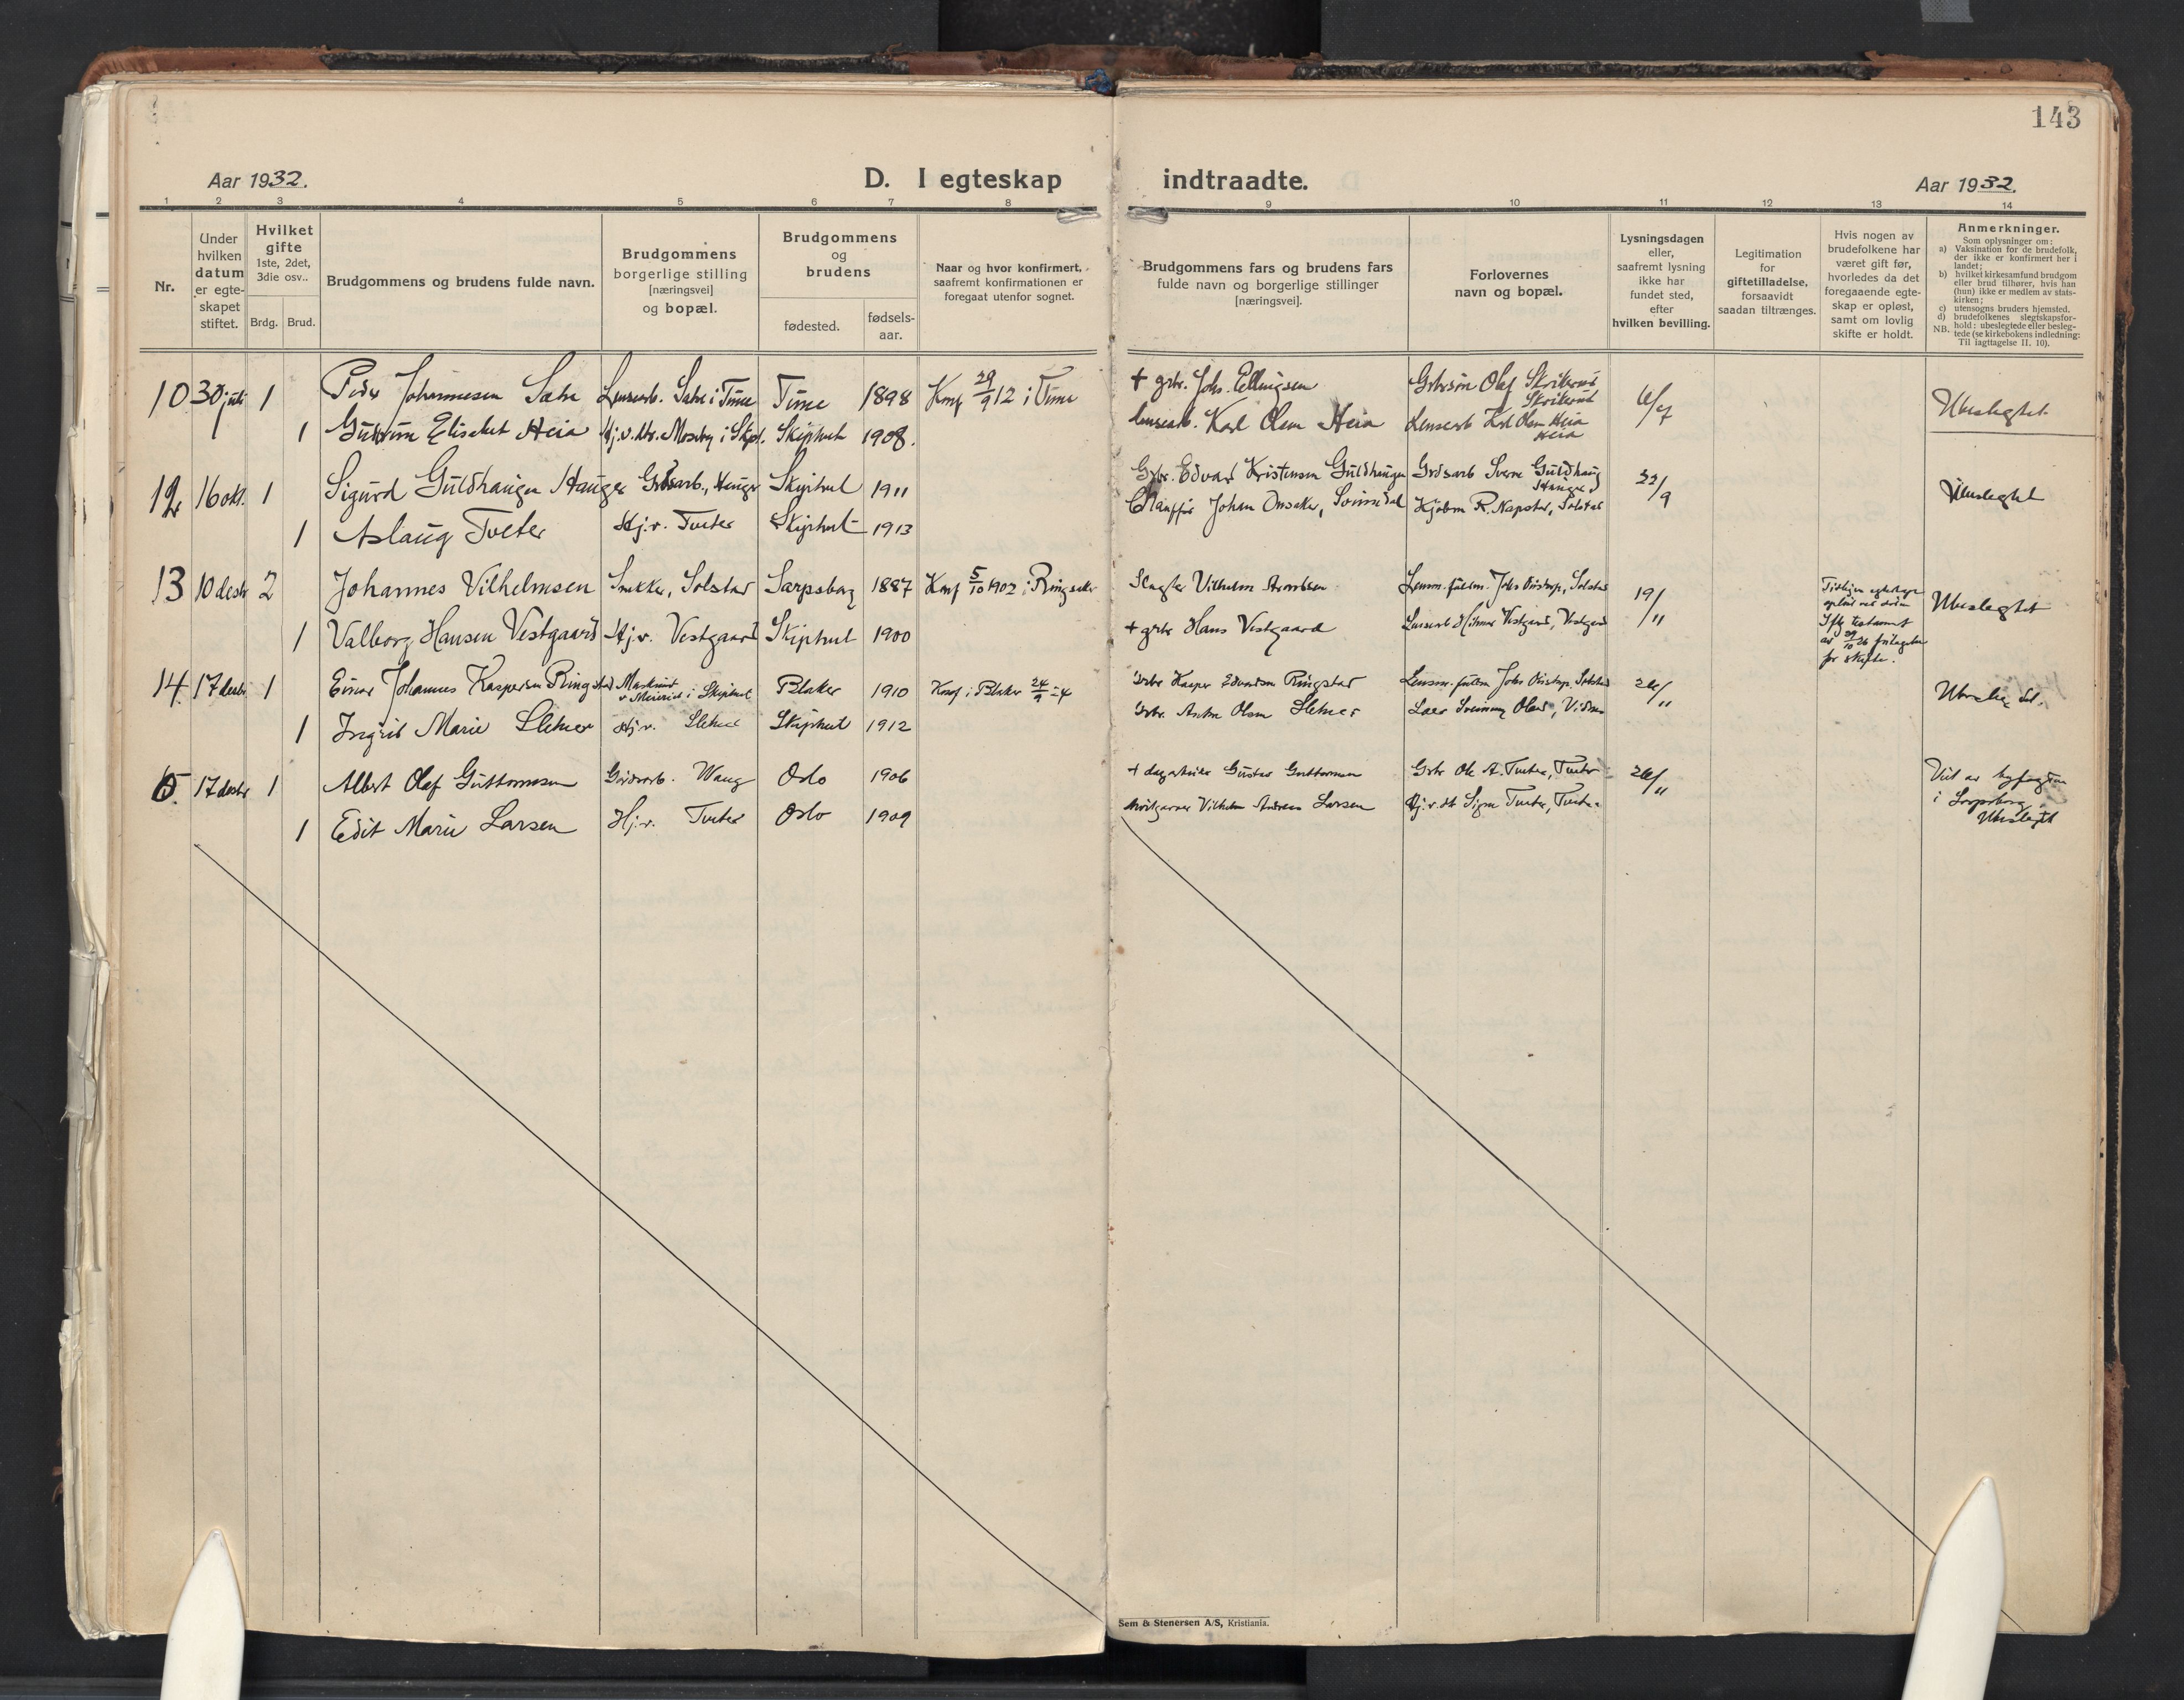 143
Aar 1932.
D. I egteskap indtraadte.
Aar 1932.
1 2 3 4 5 6 7 8 9 10 11 12 13 14
Nr.
Under
hvilken
datum
er egte-
skapet
stiftet.
Hvilket
gifte
1ste, 2det,
3die osv..
Brdg. Brud.
Brudgommens og brudens fulde navn.
Brudgommens
borgerlige stilling
[næringsvei]
og bopæl.
Brudgommens
og
brudens
fødested.
fødsels-
aar.
Naar og hvor konfirmert,
saafremt konfirmationen er
foregaat utenfor sognet.
Brudgommens fars og brudens fars
fulde navn og borgerlige stillinger
[næringsvei].
Forlovernes
navn og bopæl.
Lysningsdagen
eller,
saafremt lysning
ikke har
fundet sted,
efter
hvilken bevilling.
Legitimation
for
giftetilladelse,
forsaavidt
saadan tiltrænges.
Hvis nogen av
brudefolkene har
været gift før,
hvorledes da det
foregaaende egte-
skap er opløst,
samt om lovlig
skifte er holdt.
Anmerkninger.
Som oplysninger om:
a) Vaksination for de brudefolk,
der ikke er konfirmert her i
landet;
b) hvilket kirkesamfund brudgom
eller brud tilhører, hvis han
(hun) ikke er medlem av stats-
kirken;
c) utensogns bruders hjemsted.
d) brudefolkenes slegtskapsfor-
NB. hold: ubeslegtede eller besleg-
tede (se kirkebokens indledning:
Til lagttagelse II. 10).
10 30 juli 1 Peder Johannesen Sæhe Lensearb. Time 1898 Konf 29/9 12 i Time + gbr. Johs. Ellingsen Gbrsøn Olaf Skrikerud 6/7 Ubeslegtet
Skrikerud
1 Gudrun Elisabet Heia Hj.v. Moseby i Skipt. Skiptvet 1908. Lensearb. Karl Olsen Heia Lensearb Karl Olsen Heia
Heia
12 16 okt. 1 Sigurd Guldhaugen Hauger Grdsarb., Hauger Skiptvet 1911 Gbr. Edvard Kristensen Guldhaugen Grdsarb Sverre Guldhaug 22/9 Ubeslegtet
Hauger
1 Aslaug Tveter Hj.v. Tveter Skiptvet 1913 Chauffør Johan Onsaker, Kjøbm R. Napstad, Solstad
13 10 desbr 2 Johannes Vilhelmsen Snekker, Solstad Sarpsborg 1887 Konf 5/10 1902 i Ringsaker Slagter Vilhelm Lensm. fullm. Johs Solstad 19/11 Ubeslegtet
1 Valborg Hansen Vestgaard Hj.v. Vestgaard Skiptvet 1900 + gbr Hans Vestgaard Lensearb Hilmar Vestgaard, Vestgaard
Tidligere
Ifg testament
av 29/10 26
for skifte.
14. 17 desbr 1 Einar Johannes Kaspersen Ringstad Maskinist Blaker 1910 Konf i Blaker 24/9 24 Gbr Kasper Edvardsen Ringstad Lensm. fullm Johs Solstad 26/11 Ubeslegtet.
v Meieriet i Skiptvet
1 Ingrid Marie Sletner Hj.v. Sletner Skiptvet 1912 Gbr. Anton Olsen Sletner
15. 17 desbr 1 Albert Olaf Guttormsen Grdsarb. Oslo 1906 + dagarbeider Gustav Guttormsen Gbr Ole A. Tveter, Tveter 26/11 Viet av byfogden
i Sarpsborg
Ubeslegtet
1 Edit Marie Larsen Hj.v. Tveter Oslo 1909 Vilhelm Andreas Larsen Hj.v.dt Signe Tveter, Tveter
Sem & Stenersen A/S, Kristiania.